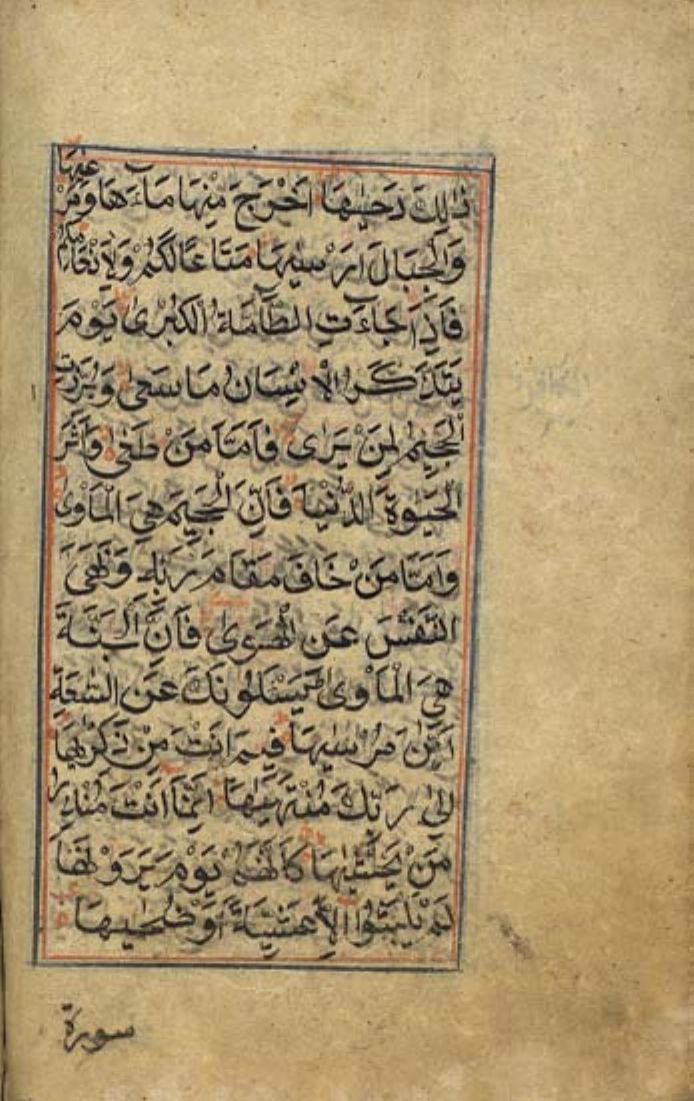 ذٰلِكَ دَحٰيهَا اَخْرَجَ مِنْهَا مَآءَهَا وَمَرْعٰيهَا
وَالْجِبَالَ اَرْسٰيهَا مَتَاعًا لَكُمْ وَلِاَنْعَامِكُمْ
فَاِذَا جَآءَتِ الطَّآمَّةُ الْكُبْرٰى يَوْمَ
يَتَذَكَّرُ الْاِنْسَانُ مَا سَعٰى وَبُرِّزَتِ
الْجَحِيمُ لِمَنْ يَرٰى فَاَمَّا مَنْ طَغٰى وَاٰثَرَ
الْحَيٰوةَ الدُّنْيَا فَاِنَّ الْجَحِيمَ هِيَ الْمَاْوٰى
وَاَمَّا مَنْ خَافَ مَقَامَ رَبِّهِ وَنَهَى
النَّفْسَ عَنِ الْهَوٰى فَاِنَّ الْجَنَّةَ
هِيَ الْمَاْوٰى يَسْئَلُونَكَ عَنِ السَّاعَةِ
اَيَّانَ مُرْسٰيهَا فِيمَ اَنْتَ مِنْ ذِكْرٰيهَا
اِلٰى رَبِّكَ مُنْتَهٰيهَا اِنَّمَا اَنْتَ مُنْذِرُ
مَنْ يَخْشٰيهَا كَاَنَّهُمْ يَوْمَ يَرَوْنَهَا
لَمْ يَلْبَثُوا اِلَّا عَشِيَّةً اَوْ ضُحٰيهَا
سورة